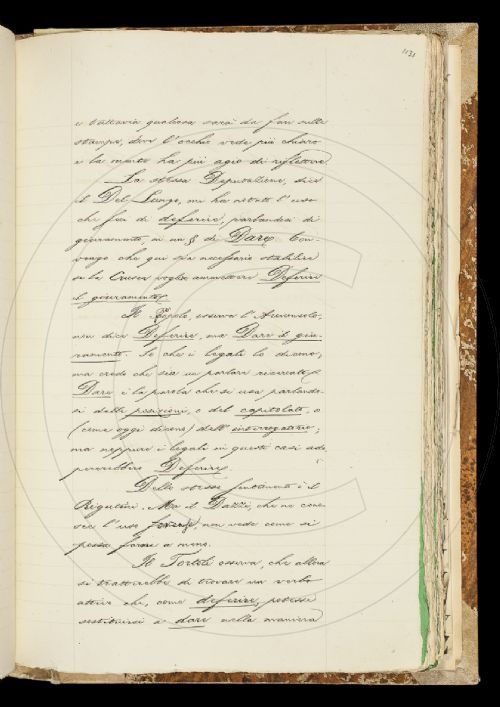 1131
e tuttavia qualcosa sarà da fare sulle
stampe, dove l'occhio vede più chiaro
e la mente ha più agio di riflettere.
La stessa Deputazione, dice
il Del Lungo, mi ha notato l'uso
che fu di deferire, parlandosi di
giuramento, in un § di Dare. Con-
vengo che qui sia necessario stabilire
se la Crusca voglia ammettere Deferire
il giuramento.
Il Popolo, osserva l'
non dica Deferire, ma Dare il giu-
ramento. Se che i legali lo dicono,
ma crede che sia un parlare ricercato.
Dare è la parola che si usa parlando-
si delle posizioni, o del capitolato, o
(come oggi dicono) dell'interrogatorio;
ma neppure i legali in questi casi ado
prerebbero Deferire.
Dello stesso sentimento è il
Rigutini. Ma il Dazzi, che ne cono-
sce l'uso forense, non vede come si
possa farne a meno.
Il Tortoli osserva, che allora
si tratterebbe di trovare un verbo
attivo che, come deferire, potesse
sostituirsi a dare nella maniera